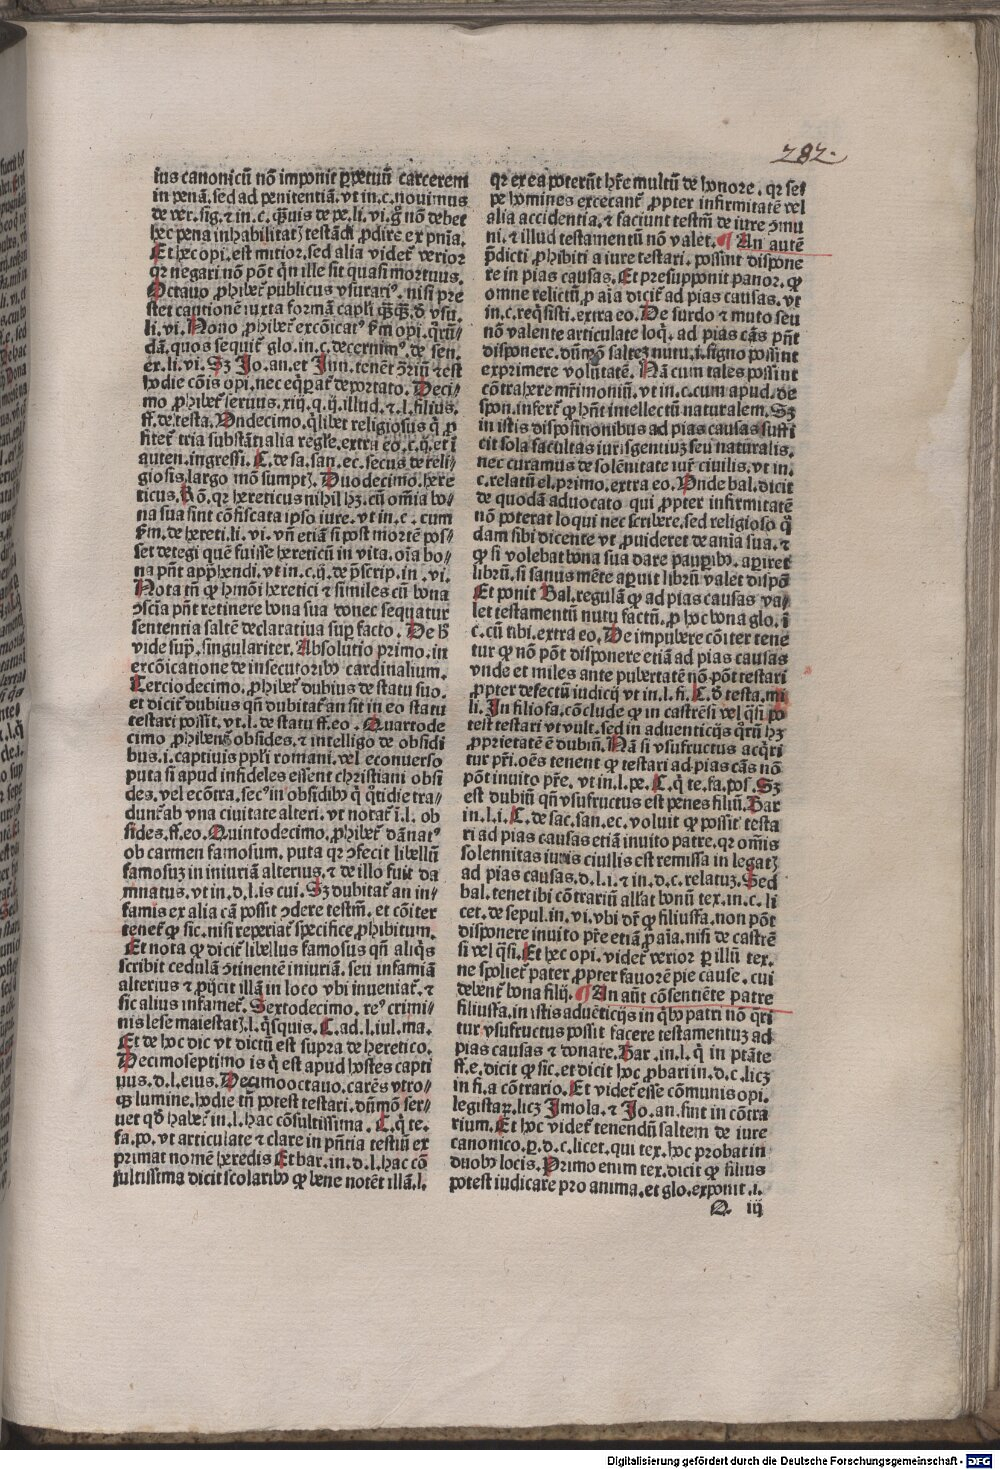 282.
ius canonicū nō imponit ꝑpetuū carcerem
in penā. sed ad penitentiā. vt in. c. nouimus
de ver. sig. ⁊ in. c. qͣuis de pe. li. vi. g̊ nō debet
hec pena inhabilitatꝫ testādi ꝓdire ex pn̄ia.
Et hec opi. est mitior. sed alia videt᷑ verior
qꝛ negari nō pōt qͥn ille sit quasi mortuus.
Octauo ꝓhibet᷑ publicus vsurariꝰ. nisi pre
stet cautionē iuxta formā capli qͣꝗͣ. d̄ vsu.
li. vi. Nono ꝓhibet᷑ excōicatꝰ ẜm opi. qͦrū⸗
dā. quos sequit᷑ glo. in. c. decernimꝰ. de sen.
ex. li. vi. Sꝫ Jo. an. et Jnn. tenēt ꝯriū ⁊ est
hodie cōis opi. nec eqͥpat᷑ deportato. Deci⸗
mo ꝓhibet᷑ seruus. xiij. q. ij. illud. ⁊. l. filius.
ff. de testa. Undecimo. qͥlibet religiosus qͥ ꝓ
fitet᷑ tria substātialia regle. extra eo. c. ij. et ī
auten. ingressi. C. de sa. san. ec. secus de reli⸗
giosis. largo mō sumptꝫ. Duodecimo. here
ticus. Rō. qꝛ hereticus nihil hꝫ. cū om̄ia bo⸗
na sua sint cōfiscata ipso iure. vt in. c. cum
ẜm. de hereti. li. vi. vn̄ etiā si post mortē pos⸗
set detegi quē fuisse hereticū in vita. oīa bo⸗
na pn̄t app̄hendi. vt in. c. ij. de p̄scrip. in. vi.
Nota tn̄ ꝙ hmōi heretici ⁊ similes cū bona
ꝯscīa pn̄t retinere bona sua donec sequatur
sententia saltē declaratiua suꝑ facto. De h̄
vide supͣ. singulariter. Absolutio primo. in
excōicatione de insecutoribꝰ cardinalium.
Terciodecimo. ꝓhibet᷑ dubius de statu suo.
et dicit᷑ dubius qn̄ dubitat᷑ an sit in eo statu
testari possit. vt. l. de statu ff. eo. Quartode
cimo ꝓhibent᷑ obsides. ⁊ intelligo de obsidi
bus. i. captiuis ppl̄i romani. vel econuerso
puta si apud infideles essent christiani obsi
des. vel ecōtra. secꝰ in obsidibꝰ qͥ qͦtidie tra⸗
dunt᷑ ab vna ciuitate alteri. vt notat᷑ ī. l. ob
sides. ff. eo. Quintodecimo. ꝓhibet᷑ dānatꝰ
ob carmen famosum. puta qꝛ ꝯfecit libellū
famosuꝫ in iniuriā alterius. ⁊ de illo fuit da
mnatus. vt in. d. l. is cui. Sꝫ dubitat᷑ an in⸗
famis ex alia cā possit ꝯdere testm̄. et cōiter
tenet᷑ ꝙ sic. nisi reperiat᷑ specifice ꝓhibitum.
Et nota ꝙ dicit᷑ libellus famosus qn̄ aliqͥs
scribit cedulā ꝯtinentē iniuriā. seu infamiā
alterius ⁊ ꝓijcit illā in loco vbi inueniat᷑. ⁊
sic alius infamet᷑. Sextodecimo. reꝰ crimi⸗
nis lese maiestatꝫ. l. qͥsquis. C. ad. l. iul. ma.
Et de hoc dic vt dictū est supra de heretico.
Decimoseptimo is qͥ est apud hostes capti
uus. d. l. eius. Decimooctauo. carēs vtro⸗
qꝫ lumine. hodie tn̄ potest testari. dūmō ser⸗
uet qd̓ habet᷑ in. l. hac cōsultissima. C. qͥ te.
fa. po. vt articulate ⁊ clare in pn̄tia testiū ex
primat nomē heredis Et bar. in. d. l. hac cō
sultissima dicit scolaribꝰ ꝙ bene notēt illā. l.
qꝛ ex ea poterūt hr̄e multū de honore. qꝛ se⸗
pe homines excecant᷑ ꝓpter infirmitatē vel
alia accidentia. ⁊ faciunt testm̄ de iure ꝯmu
ni. ⁊ illud testamentū nō valet. ¶ An autē
p̄dicti ꝓhibiti a iure testari. possint dispone
re in pias causas. Et presupponit panor. ꝙ
omne relictū ꝓ aīa dicit᷑ ad pias causas. vt
in. c. reqͥsisti. extra eo. De surdo ⁊ muto seu
nō valente articulate loqͥ. ad pias cās pn̄t
disponere. dūmō salteꝫ nutu. i. signo possint
exprimere volūtatē. Nā cum tales possint
cōtrahere mr̄imoniū. vt in. c. cum apud. de
spon. infert᷑ ꝙ hn̄t intellectū naturalem. Sꝫ
in istis dispositionibus ad pias causas suffi
cit sola facultas iurisgentiuꝫ seu naturalis.
nec curamus de solēnitate iur̄ ciuilis. vt in.
c. relatū el. primo. extra eo. Unde bal. dicit
de quodā aduocato qui ꝓpter infirmitatē
nō poterat loqui nec scribere. sed religioso qͦ
dam sibi dicente vt ꝓuideret de aīa sua. ⁊
ꝙ si volebat bona sua dare pauꝑibꝰ. aꝑiret
librū. si sanus mēte aꝑuit librū valet dispō
Et ponit Bal. regulā ꝙ ad pias causas va⸗
let testamentū nutu factū. ꝓ hoc bona glo. ī
c. cū tibi. extra eo. De impubere cōiter tene
tur ꝙ nō pōt disponere etiā ad pias causas
vnde et miles ante pubertatē nō pōt testari
ꝓpter defectū iudicij vt in. l. fi. C. d̄ testa. mi
li. Jn filiofa. cōclude ꝙ in castrēsi vel qͣsi po
test testari vt vult. sed in aduenticijs qͦrū hꝫ
ꝓprietatē ē dubiū. Nā si vsufructus acqͥri
tur pr̄i. oēs tenent ꝙ testari ad pias cās nō
pōt inuito pr̄e. vt in. l. pe. C. qͥ te. fa. pos. Sꝫ
est dubiū qn̄ vsufructus est penes filiū. Bar
in. l. i. C. de sac. san. ec. voluit ꝙ possit testa
ri ad pias causas etiā inuito patre. qꝛ om̄is
solennitas iuris ciuilis est remissa in legatꝫ
ad pias causas. d. l. i. ⁊ in. d. c. relatuꝫ. Sed
bal. tenet ibi cōtrariū allat bonū tex. in. c. li
cet. de sepul. in. vi. vbi dr̄ ꝙ filiusfa. non pōt
disponere inuito pr̄e etiā ꝓ aīa. nisi de castrē
si vel qͣsi. Et hec opi. videt᷑ verior ꝑ illū tex.
ne spoliet᷑ pater ꝓpter fauorē pie cause. cui
debent᷑ bona filij. ¶ An aūt cōsentiēte patre
filiusfa. in istis aduēticijs in qͥbꝰ patri nō qͥri
tur vsufructus possit facere testamentuꝫ ad
pias causas ⁊ donare. Bar. in. l. qͥ in ptāte
ff. e. dicit ꝙ sic. et dicit hoc ꝓbari in. d. c. licꝫ
in fi. a cōtrario. Et videt᷑ esse cōmunis opi.
legistaꝝ. licꝫ Jmola. ⁊ Jo. an. sint in cōtra
rium. Et hoc videt᷑ tenendū saltem de iure
canonico. ꝑ. d. c. licet. qui tex. hoc probat in
duobꝰ locis. Primo enim tex. dicit ꝙ filius
potest iudicare pro anima. et glo. exponit. i.
Q. iij
Digitalisierung gefördert durch die Deutsche Forschungsgemeinschaft - DFG